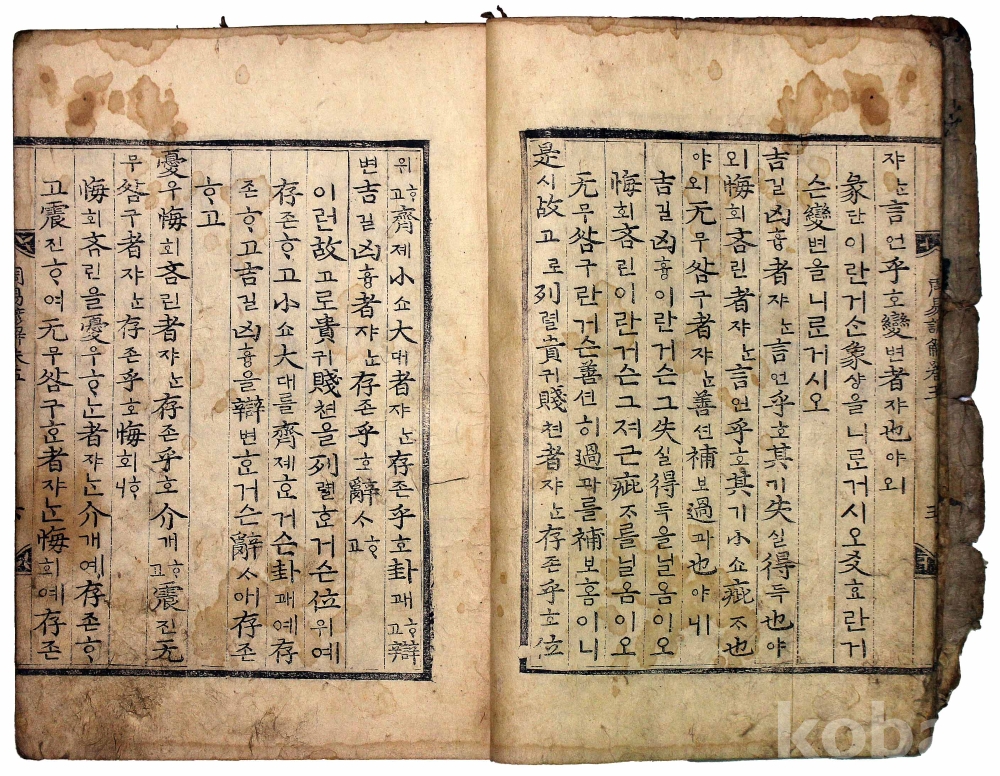 쟈ᄂᆞᆫ言언乎호變변者쟈也야외
彖단이란거ᄉᆞᆫ象샹을니ᄅᆞᆫ거시오爻효란거
슨變변을니ᄅᆞᆫ거시오
吉길凶흉者쟈ᄂᆞᆫ言언乎호其기失실得득也야
외悔회吝린者쟈ᄂᆞᆫ言언乎호其기小쇼疵ᄌᆞ也
야외无무咎구者쟈ᄂᆞᆫ善션補보過과也야ㅣ니
吉길凶흉이란거슨그失실得득을닐옴이오
悔회吝린이란거슨그져근疵ᄌᆞ를닐옴이오
无무咎구란거슨善션히過과를補보홈이니
是시故고로列렬貴귀賤쳔者쟈ᄂᆞᆫ存존乎호位
위ᄒᆞ고齊졔小쇼大대者쟈ᄂᆞᆫ存존乎호卦괘ᄒᆞ고辯
변吉길凶흉者쟈ᄂᆞᆫ存존乎호辭ᄉᆞᄒᆞ고
이런故고로貴귀賤쳔을列렬호거슨位위예
存존ᄒᆞ고小쇼大대를齊졔호거슨卦괘예存
존ᄒᆞ고吉길凶흉을辯변호거슨辭ᄉᆞ애存존
ᄒᆞ고
憂우悔회吝린者쟈ᄂᆞᆫ存존乎호介개ᄒᆞ고震진无
무咎구者쟈ᄂᆞᆫ存존乎호悔회ᄒᆞ니
悔회吝린을憂우ᄒᆞᄂᆞᆫ者쟈ᄂᆞᆫ介개예存존ᄒᆞ
고震진ᄒᆞ여无무咎구호者쟈ᄂᆞᆫ悔회예存존
周易諺解卷五
koba